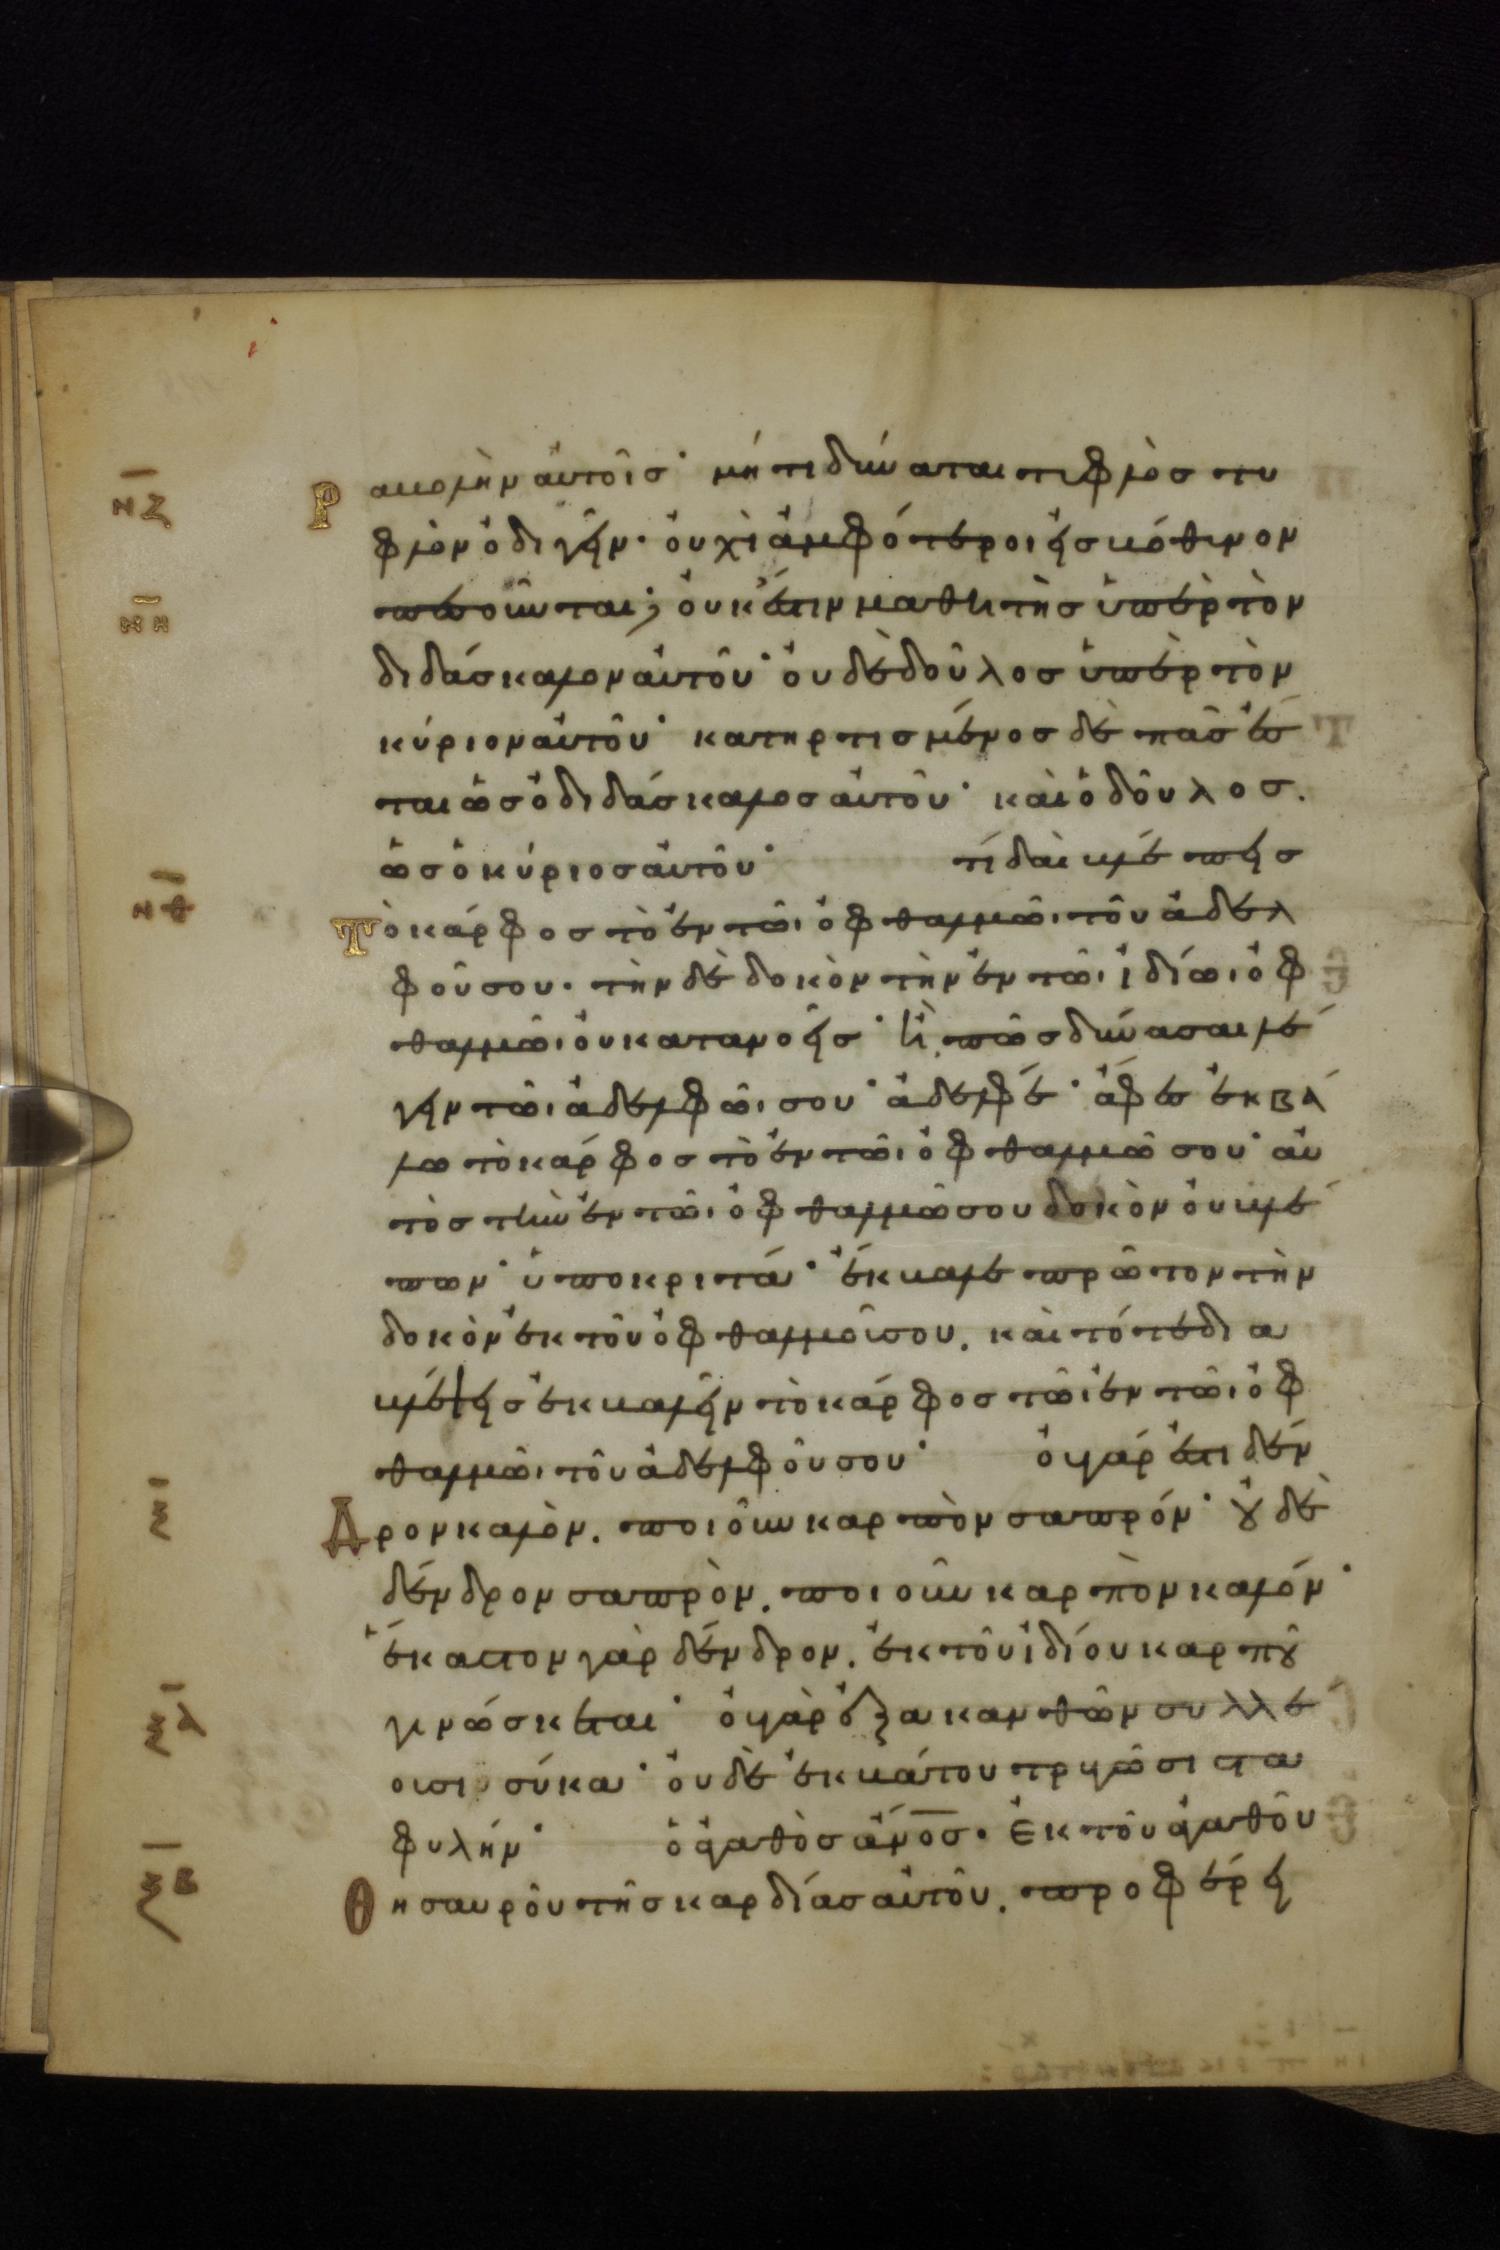 νζ Ραβολὴν αὐτοῖσ· μήτι δύναται τιφλὸσ τυ
φλὸν ὁδιγεῖν· οὐχὶ ἀμφότεροι εἰσ βόθινον
νη πεσοῦνται; οὐκ ἔστιν μαθητὴσ ὑπὲρ τὸν
διδάσκαλον αὐτοῦ· οὐδὲ δοῦλοσ ὑπὲρ τὸν
κύριον αὐτοῦ· κατηρτισμένοσ δὲ πᾶσ ἔσ
ται ὡσ ὁ διδάσκαλοσ αὐτοῦ· καὶ ὁ δοῦλοσ.
νθ ὡσ ὁ κύριοσ αὐτοῦ· τί δαὶ βλέπεισ
Τὸ κάρφοσ τὸ ἐν τῶι ὀφθαλμῶι τοῦ ἀδελ
φοῦ σου· τὴν δὲ δοκὸν τὴν ἐν τῶι ἰδίωι ὀφ
θαλμῶι οὐ κατανοεῖσ· ἢ πῶσ δύνασαι λέ
γειν τῶι ἀδελφῶι σου· ἀδελφέ· ἄφεσ ἐκβά
λω τὸ κάρφοσ τὸ ἐν τῶι ὀφθαλμῶ σου· αὐ
τὸσ τὴν ἐν τῶι ὀφθαλμῶ σου δοκὸν οὐ βλέ
πων· ὑποκριτά· ἔκβαλε πρῶτον τὴν
δοκὸν ἐκ τοῦ ὀφθαλμοῦ σου. καὶ τότε δια
βλέψεισ ἐκβαλεῖν τὸ κάρφοσ τῶ ἐν τῶι ὀφ
θαλμῶι τοῦ ἀδελφοῦ σου· οὐ γάρ ἐστι δέν
ξ Δρον καλὸν. ποιοῦν καρπὸν σαπρόν· οὐδὲ
δένδρον σαπρὸν. ποιοῦν καρπὸν καλόν·
ἕκαστον γὰρ δένδρον. ἐκ τοῦ ἰδίου καρποῦ
ξα γινώσκεται· οὐ γὰρ ἐξ ακανθῶν συλλέ
ουσι σύκα· οὐδὲ ἐκ βάτου τρυγῶσι στα
ξβ φυλήν· ὁ ἀγαθὸσ ἄνοσ· ἐκ τοῦ ἀγαθοῦ
Θησαυροῦ τῆσ καρδίασ αὐτοῦ. προφέρει